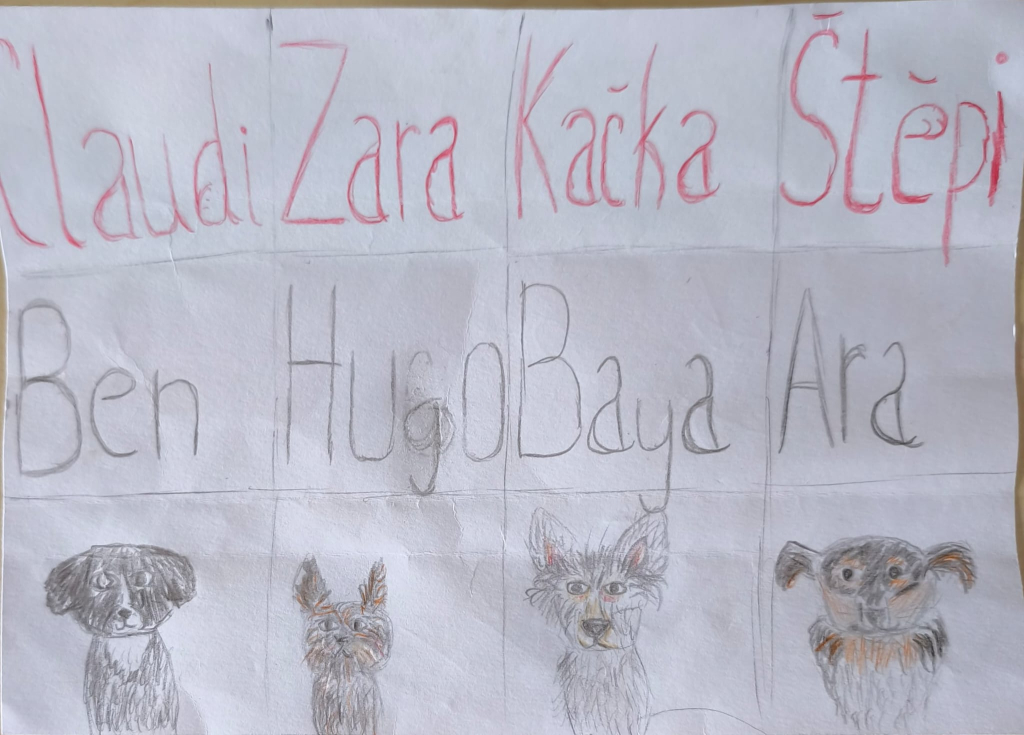 Claudi Zara Kačka Štěpi
Ben Hugo Baya Ara